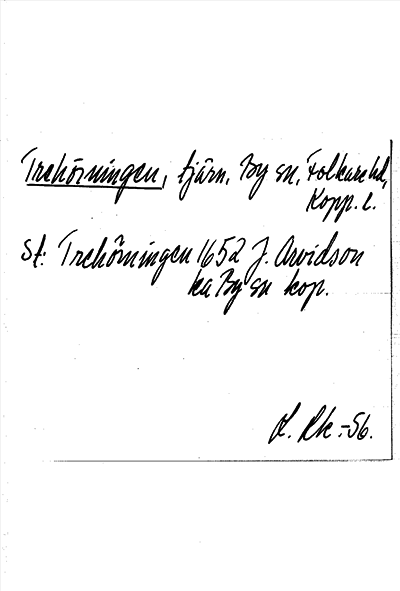 Trehörningen, tjärn, By sn, Folkare hd,
Kopp. l.
St. Trehörningen 1652 J. Arvidson
ka By sn kop.
L. Rk -56.